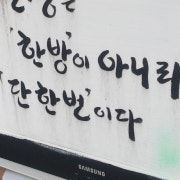 '한방'이 아니라
'단 한번'이다
SAMSUNG